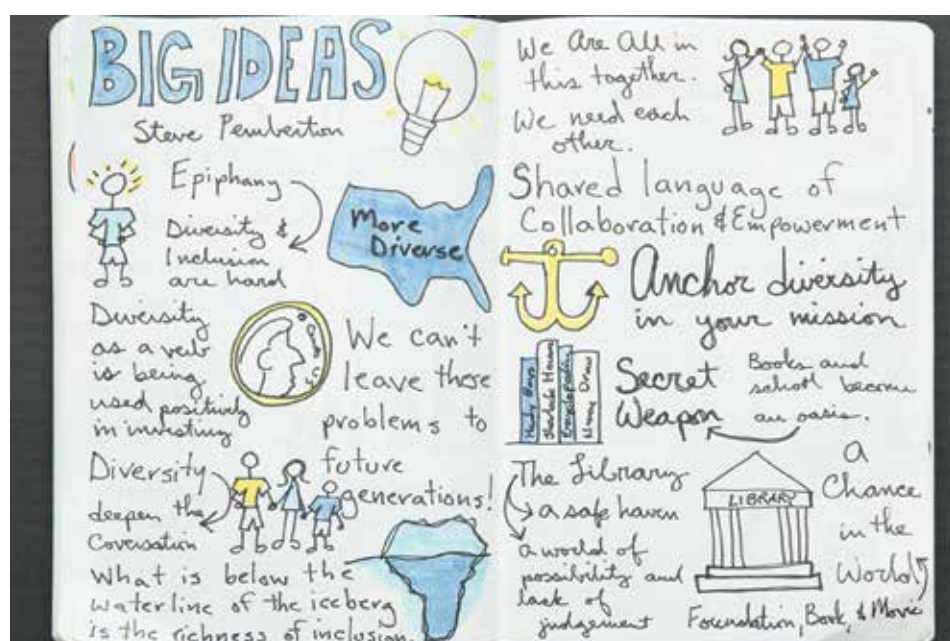 BIG IDEAS
Steve Pemberton
Epiphany
Diversity &
Inclusion
are hard
More
Diverse
Diversity
as a verb
is being
used positively
in investing
We can't
leave these
problems to
future
generations!
Diversity
deepen the
Coversation
What is below the
waterline of the iceberg
is the richness of inclusion.
We Are All in
this together.
We need each
other.
Shared language of
Collaboration & Empowerment
Anchor diversity
in your mission
Hardy Boys
Sherlock Holmes
Encyclopedia
Nancy Drew
Secret
Weapon
Books and
school become
an oasis.
The Library
a safe haven
a world of
possibility and
lack of
judgement
LIBRARY
A
Chance
in the
World
Foundation, Book, & Movie